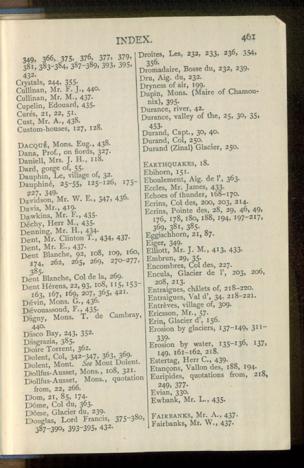 INDEX.
461
349, 366, 375, 376, 377, 379,
381, 383-384, 387-389, 393, 395,
432.
Crystals, 244, 355.
Cullinan, Mr. F. J., 440.
Cullinan, Mr. M., 437.
Cupelin, Edouard, 435.
Curés, 21, 22, 51.
Cust, Mr. A., 438.
Custom-houses, 127, 128.
DACQUÉ, Mons. Eug., 438.
Dana, Prof., on fiords, 327.
Daniell, Mrs. J. H., 118.
Dard, gorge of, 55.
Dauphin, Le, village of, 32.
Dauphiné, 25-55, 125-126, 175-
227, 349.
Davidson, Mr. W. E., 347, 436.
Davis, Mr., 419.
Dawkins, Mr. F., 435.
Déchy, Herr M., 435.
Denning, Mr. H., 434.
Dent, Mr. Clinton T., 434, 437.
Dent, Mr. E., 437.
Dent Blanche, 92, 108, 109, 160,
174, 262, 265, 269, 270-277,
385.
Dent Blanche, Col de la, 269.
Dent Hérens, 22, 93, 108, 115, 153-
163, 167, 169, 207, 365, 421.
Dévin, Mons. G., 436.
Dévouassoud, F., 435.
Digny, Mons. T. de Cambray,
440.
Disco Bay, 243, 352.
Disgrazia, 385.
Doire Torrent, 362.
Dolent, Col, 342-347, 363, 369.
Dolent, Mont. See Mont Dolent.
Dollfus-Ausset, Mons., 108, 321.
Dollfus-Ausset, Mons., quotation
from, 22, 266.
Dom, 21, 85, 174.
Dôme, Col du, 363.
Dôme, Glacier du, 239.
Douglas, Lord Francis, 375-380,
387-390, 393-395, 432.
Droites, Les, 232, 233, 236, 354,
356.
Dromadaire, Bosse du, 232, 239.
Dru, Aig. du, 232.
Dryness of air, 199.
Dupin, Mons. (Maire of Chamou-
nix), 395.
Durance, river, 42.
Durance, valley of the, 25, 30, 35,
453.
Durand, Capt., 30, 40.
Durand, Col, 250.
Durand (Zinal) Glacier, 250.
EARTHQUAKES, 18.
Ebihorn, 151.
Eboulement, Aig. de l', 363.
Eccles, Mr. James, 433.
Echoes of thunder, 168-170.
Ecrins, Col des, 200, 203, 214.
Ecrins, Pointe des, 28, 29, 46, 49,
176, 178, 180, 188, 194, 197-217,
369, 381, 385.
Eggischhorn, 21, 87.
Eiger, 349.
Elliott, Mr. J. M., 413, 433.
Embrun, 29, 35.
Encombres, Col des, 227.
Encula, Glacier de l', 203, 206,
208, 213.
Entraigues, châlets of, 218-220.
Entraigues, Val d', 34, 218-221.
Entrèves, village of, 309.
Ericsson, Mr., 57.
Erin, Glacier d', 156.
Erosion by glaciers, 137-149, 311-
339.
Erosion by water, 135-136, 137,
149, 161-162, 218.
Estertag, Herr C., 439.
Etançons, Vallon des, 188, 194.
Euripides, quotations from, 218,
249, 377.
Evian, 330.
Ewbank, Mr. L., 435.
FAIRBANKS, Mr. A., 437.
Fairbanks, Mr. W., 437.